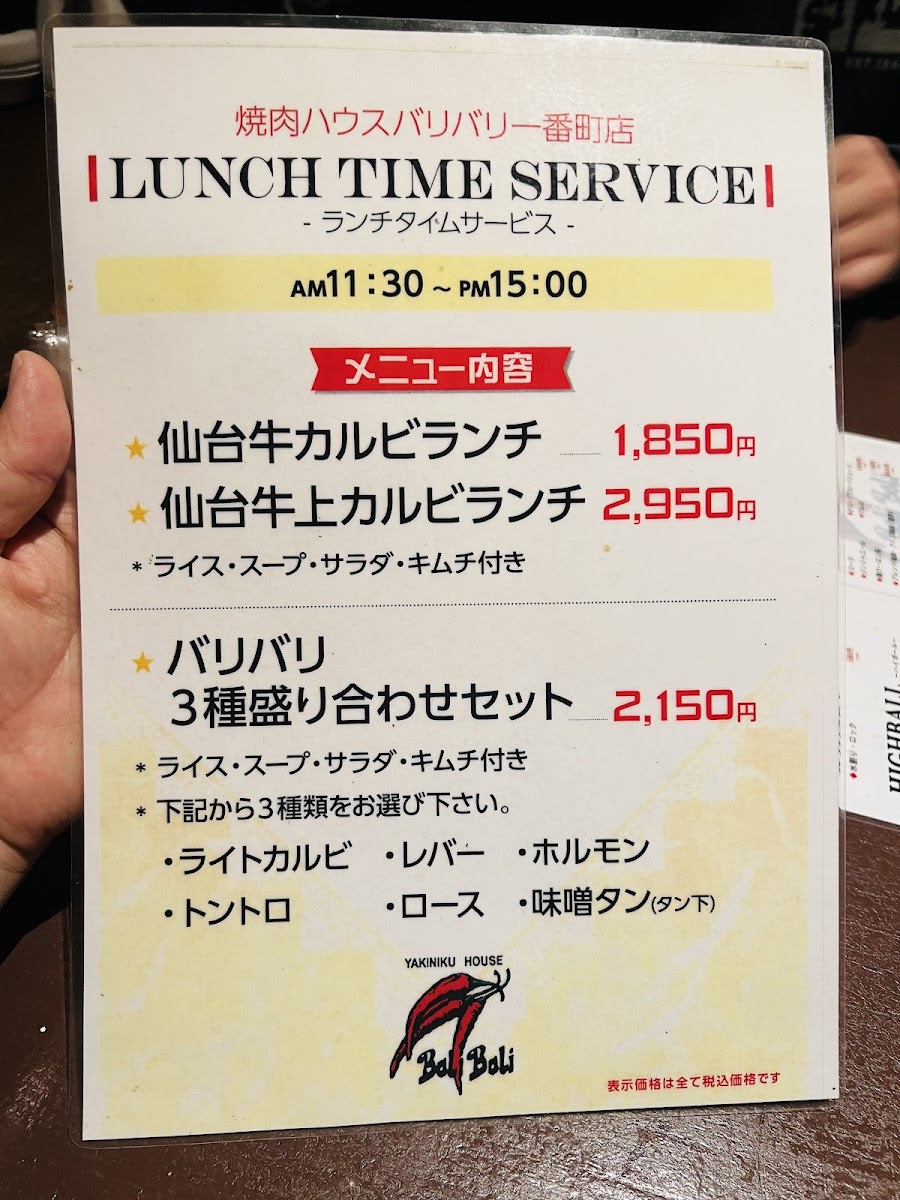 焼肉ハウスバリバリ一番町店
LUNCH TIME SERVICE
- ランチタイムサービス -
AM11:30 ~ PM15:00
メニュー内容
★ 仙台牛カルビランチ 1,850円
★ 仙台牛上カルビランチ 2,950円
* ライス・スープ・サラダ・キムチ付き
★ バリバリ
3種盛り合わせセット 2,150円
* ライス・スープ・サラダ・キムチ付き
* 下記から3種類をお選び下さい。
・ライトカルビ ・レバー ・ホルモン
・トントロ ・ロース ・味噌タン(タン下)
YAKINIKU HOUSE
Bali Bali
表示価格は全て税込価格です
HIGHBALL